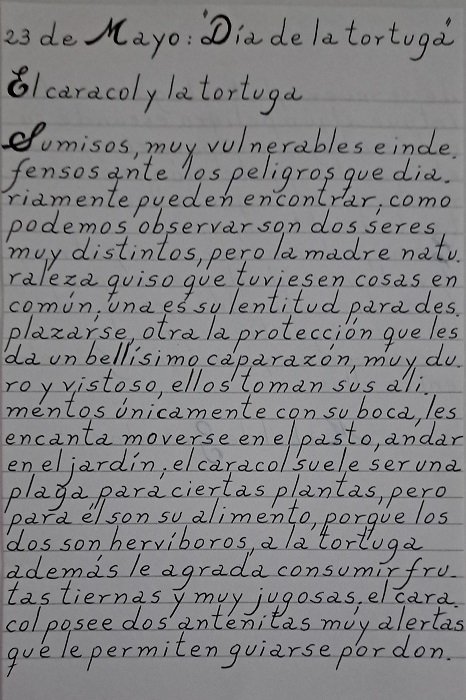 23 de Mayo: "Día de la tortuga"
El caracol y la tortuga
Sumisos, muy vulnerables e inde.
fensos ante los peligros que dia.
riamente pueden encontrar; como
podemos observar son dos seres
muy distintos, pero la madre natu.
raleza quiso que tuviesen cosas en
común, una es su lentitud para des.
plazarse, otra la protección que les
da un bellísimo caparazón, muy du.
ro y vistoso, ellos toman sus ali.
mentos únicamente con su boca, les
encanta moverse en el pasto, andar
en el jardín; el caracol suele ser una
plaga para ciertas plantas, pero
para él son su alimento, porque los
dos son hervíboros, a la tortuga
además le agrada consumir fru.
tas tiernas y muy jugosas; el cara.
col posee dos antenitas muy alertas
que le permiten guiarse por don.